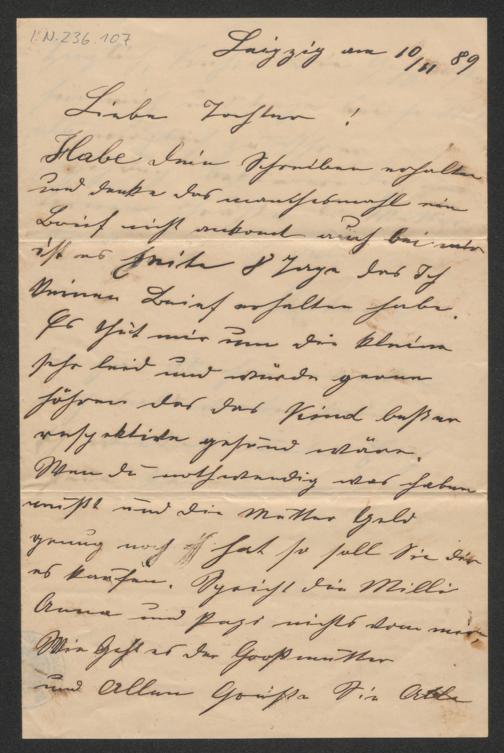 I.N. 236.107
Leipzig am 10/11 89
Liebe Tochter !
Habe dein Schreiben erhalten
und denke das manchesmahl ein
Brief nicht ankomt auch bei mir
ist es heite 8 Tage das Ich
keinen Brief erhalten habe.
Es thut mir um die kleine
sehr leid und würde gerne
höhren das das Kind beßer
respektive gesund wäre.
Wen du nothwendig was haben
mußt und die Mutter Geld
genug noch hat so soll Sie dir
es kaufen. Spricht die Milli
Anna und Pepi nichts vom mir
Wie Geht es der Großmutter
und Allen Grüße Sie Alle